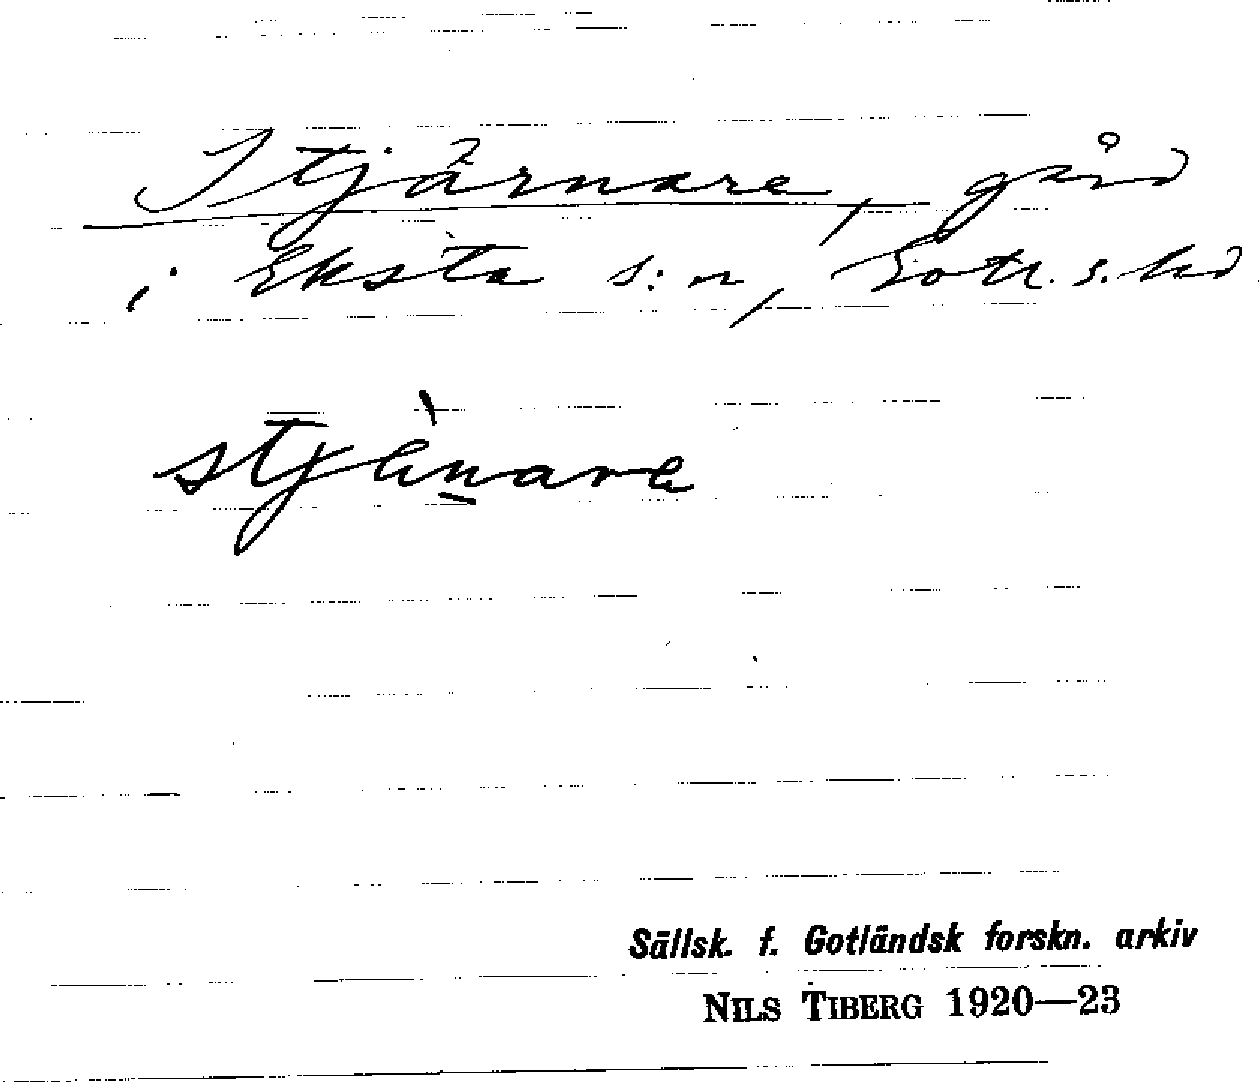 Stjärnare, gård
i Eksta s:n, Gotl. s. hd
stjànare
Sällsk. f. Gotländsk forskn. arkiv
NILS TIBERG 1920—23